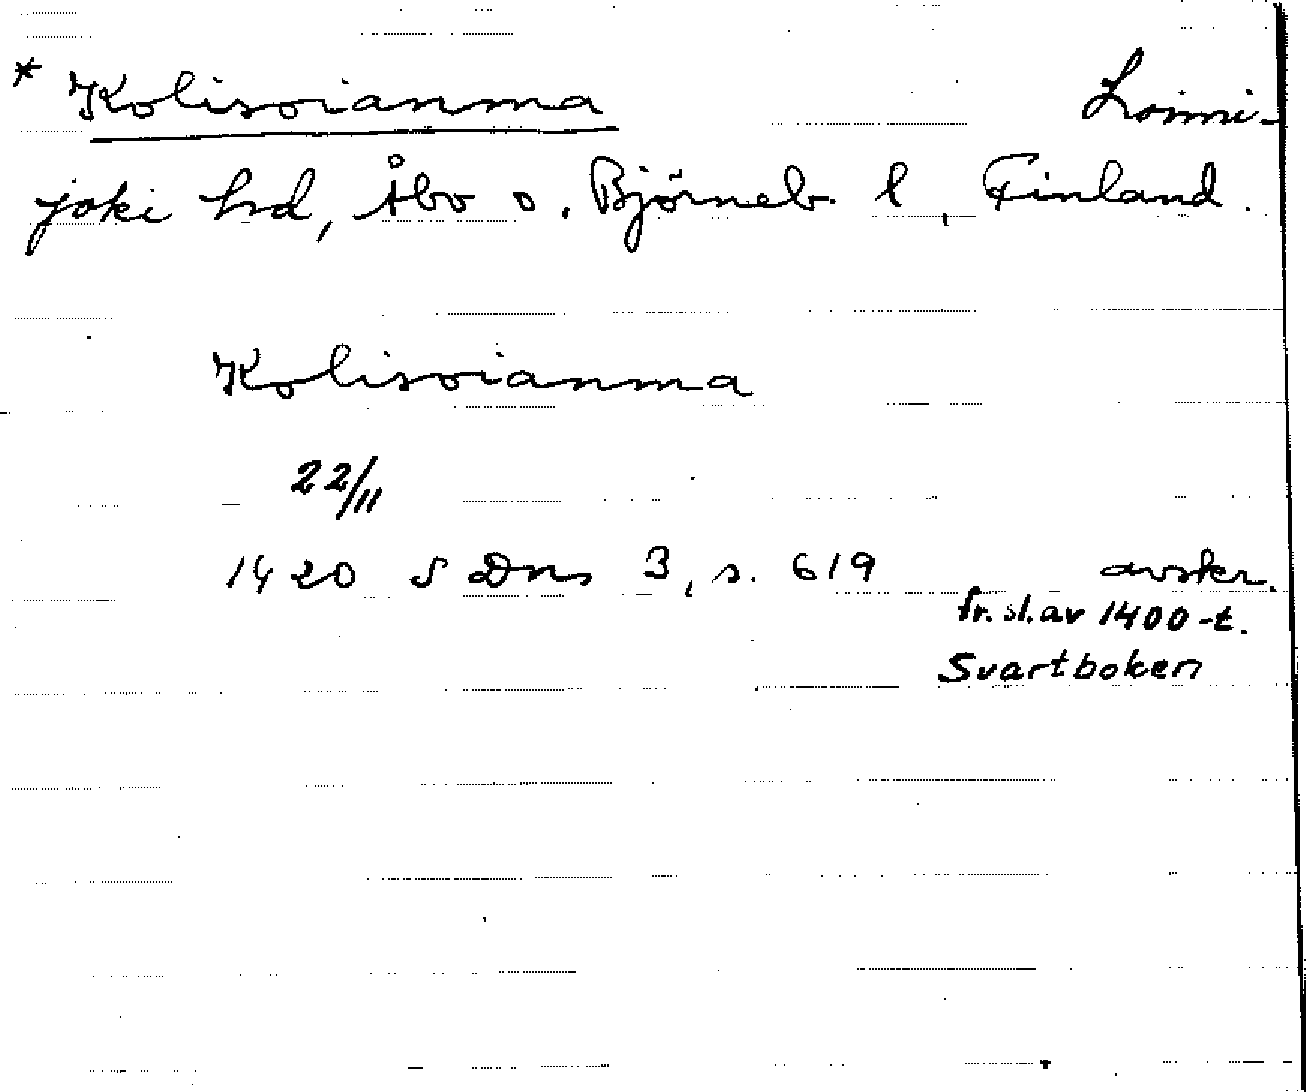 * Kolisoianma Loimi-
joki hd, Åbo o. Björneb. l, Finland.
Kolisoianma
22/11
1420 S Dns 3, s. 619 avskr.
fr. sl. av 1400-t.
Svartboken